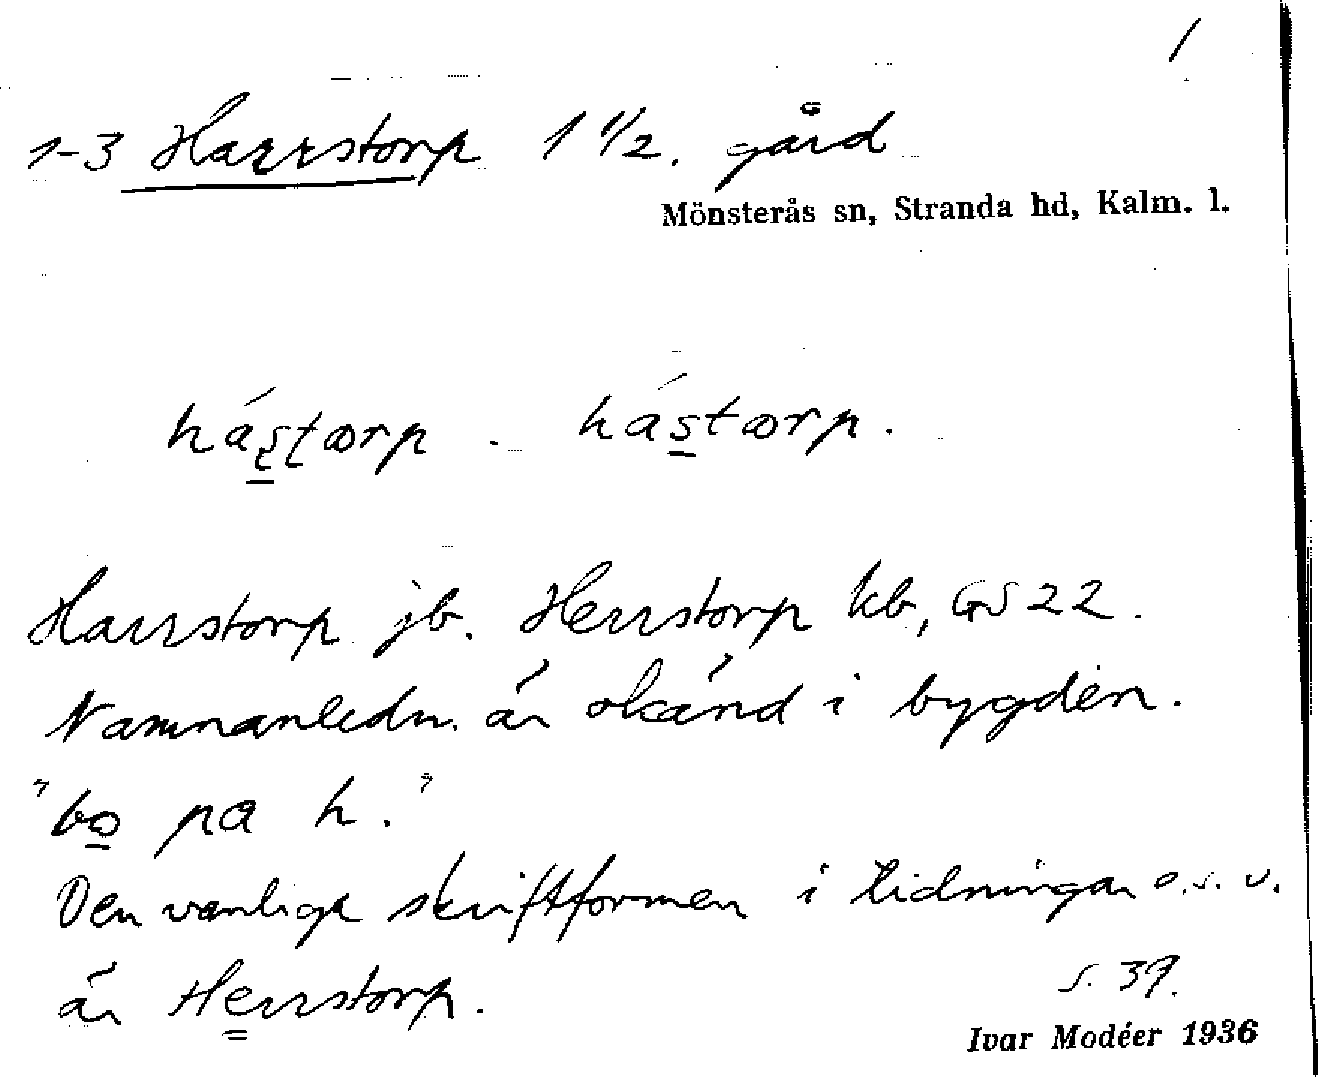 1
1-3 Harrstorp 1 1/2. gård
Mönsterås sn, Stranda hd, Kalm. l.
hástorp - hástorp.
Harrstorp jb. Herrstorp kb, GS 22.
Namnanledn. är okänd i bygden.
"bo på h."
Den vanliga skriftformen i tidningar o.s.v.
är Herrstorp.
s. 39.
Ivar Modéer 1936